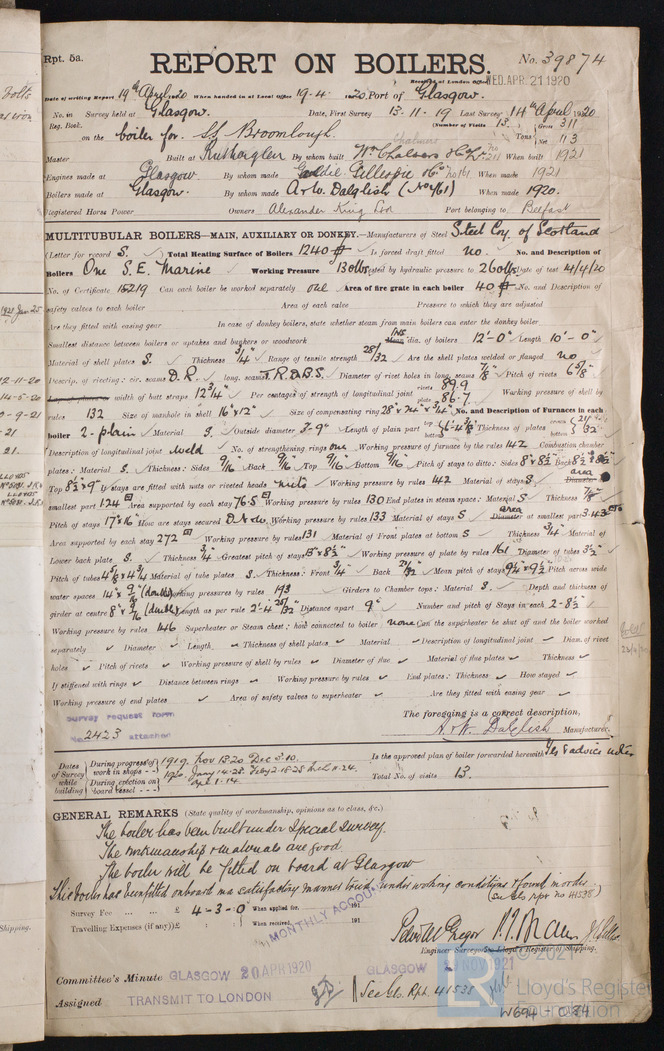 Rpt. 5a.
REPORT ON BOILERS.
No. 39874
Received at London Office WED. APR. 21 1920
Date of writing Report 19th April 1920 When handed in at Local Office 19-4-1920 Port of Glasgow.
No. in Survey held at Glasgow. Date, First Survey 13-11-19 Last Survey 14th April 1920
Reg. Book. (Number of Visits 13) Gross 311
on the boiler for SS Broomlough Tons Net 113
Master Built at Rutherglen By whom built Wm Chalmers & Co When built 1921
Engines made at Glasgow. By whom made Gillespie & Co No 161 When made 1921
Boilers made at Glasgow. By whom made A & W. Dalglish (No 761) When made 1920.
Registered Horse Power Owners Alexander King Ltd Port belonging to Belfast
MULTITUBULAR BOILERS—MAIN, AUXILIARY OR DONKEY.—Manufacturers of Steel Steel Coy. of Scotland
(Letter for record S. ) Total Heating Surface of Boilers 1240 Is forced draft fitted no. No. and Description of
Boilers One S.E. Marine Working Pressure 130 lbs Tested by hydraulic pressure to 260 lbs Date of test 4/4/20
No. of Certificate 15219 Can each boiler be worked separately one Area of fire grate in each boiler 40 No. and Description of
safety valves to each boiler Area of each valve Pressure to which they are adjusted
Are they fitted with easing gear In case of donkey boilers, state whether steam from main boilers can enter the donkey boiler
Smallest distance between boilers or uptakes and bunkers or woodwork Ins. dia. of boilers 12'-0" Length 10'-0"
Material of shell plates S. Thickness 3/4 Range of tensile strength 28/32 Are the shell plates welded or flanged no
Descrip. of riveting: cir. seams D.R. long. seams T.R.D.B.S. Diameter of rivet holes in long. seams 7/8 Pitch of rivets 6 5/8
width of butt straps 12 3/4 Per centages of strength of longitudinal joint rivets 89.9 plate 86.7 Working pressure of shell by
rules 132 Size of manhole in shell 16"x12" Size of compensating ring 28"x24"x3/4" No. and Description of Furnaces in each
boiler 2-plain Material S. Outside diameter 3'-9" Length of plain part top 6'-4 3/8 bottom Thickness of plates crown bottom 21/32
Description of longitudinal joint weld No. of strengthening rings one Working pressure of furnace by the rules 142 Combustion chamber
plates: Material S. Thickness: Sides 9/16 Back 9/16 Top 9/16 Bottom 9/16 Pitch of stays to ditto: Sides 8"x8 1/2 Back 8 1/2"x8 1/2
Top 8 1/2"x9" If stays are fitted with nuts or riveted heads nuts Working pressure by rules 142 Material of stays S. area Diameter at
smallest part 1.24 Area supported by each stay 76.5 Working pressure by rules 130 End plates in steam space: Material S Thickness 7/8
Pitch of stays 17"x16 How are stays secured D.N.&W. Working pressure by rules 133 Material of stays S area Diameter at smallest part 3.43
Area supported by each stay 272 Working pressure by rules 131 Material of Front plates at bottom S Thickness 3/4 Material of
Lower back plate S Thickness 3/4 Greatest pitch of stays 13"x8 1/2 Working pressure of plate by rules 161 Diameter of tubes 3 1/2"
Pitch of tubes 4 5/8 x 4 3/4 Material of tube plates S Thickness: Front 3/4 Back 21/32 Mean pitch of stays 9 1/4 x 9 1/2 Pitch across wide
water spaces 14" x 9/16 (double) Working pressures by rules 193 Girders to Chamber tops: Material S. Depth and thickness of
girder at centre 8" x 9/16 (double) Length as per rule 2'-4 25/32 Distance apart 9" Number and pitch of Stays in each 2-8 1/2"
Working pressure by rules 146 Superheater or Steam chest; how connected to boiler none Can the superheater be shut off and the boiler worked
separately Diameter Length Thickness of shell plates Material Description of longitudinal joint Diam. of rivet
holes Pitch of rivets Working pressure of shell by rules Diameter of flue Material of flue plates Thickness
If stiffened with rings Distance between rings Working pressure by rules End plates: Thickness How stayed
Working pressure of end plates Area of safety valves to superheater Are they fitted with easing gear
The foregoing is a correct description,
A. & W. Dalglish Manufacturer.
Survey request form
No. 2423 attached
Dates of Survey while building
During progress of work in shops - - 1919. Nov 13.20 Dec 3.10. 1920. Jany 14.28. Feby 2.18.28 Mch 11.24.
During erection on board vessel - - - Apl 1.14.
Is the approved plan of boiler forwarded herewith Yes & advice note
Total No. of visits 13.
GENERAL REMARKS (State quality of workmanship, opinions as to class, &c.)
The boiler has been built under Special Survey.
The workmanship & materials are good
The boiler will be fitted on board at Glasgow
This boiler has been fitted onboard in a satisfactory manner tried under working conditions & found in order.
(see Gls rpt no 41538)
Survey Fee ... ... £ 4-3-0 When applied for, 191
Travelling Expenses (if any) £ : : When received, 191
MONTHLY ACCOUNT
Peter McGregor
Engineer Surveyor to Lloyd's Register of Shipping.
Committee's Minute GLASGOW 20 APR 1920
GLASGOW NOV 1921
Assigned TRANSMIT TO LONDON
See Gls. Rpt. 41538
© 2021
Lloyd's Register
Foundation
W694-0134